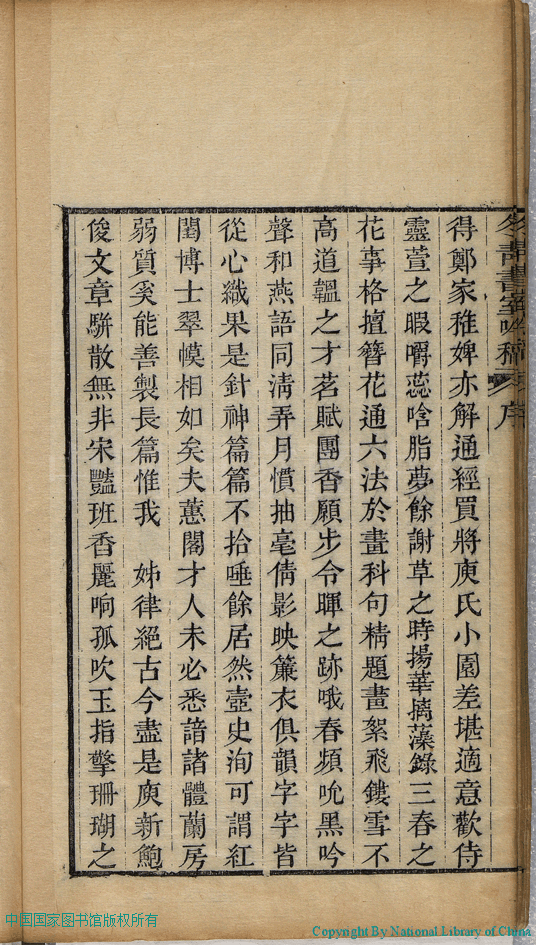 得鄭家稚婢亦解通經買將庾氏小園差堪適意歡侍
靈萱之暇嚼蕊唅脂夢餘謝草之時揚華摛藻錄三春之
花事格擅簪花通六法於畫科句精題畫絮飛鏤雪不
高道韞之才茗賦團香願步令暉之跡哦春頻吮墨吟
聲和燕語同清弄月慣抽毫倩影映簾衣俱韻字字皆
從心織果是針神篇篇不拾唾餘居然壼史洵可謂紅
閨博士翠幙相如矣夫蕙閣才人未必悉諳諸體蘭房
弱質奚能善製長篇惟我　姊律絕古今盡是庾新鮑
俊文章駢散無非宋豔班香麗响孤吹玉指擎珊瑚之
中国国家图书馆版权所有
Copyright By National Library of China